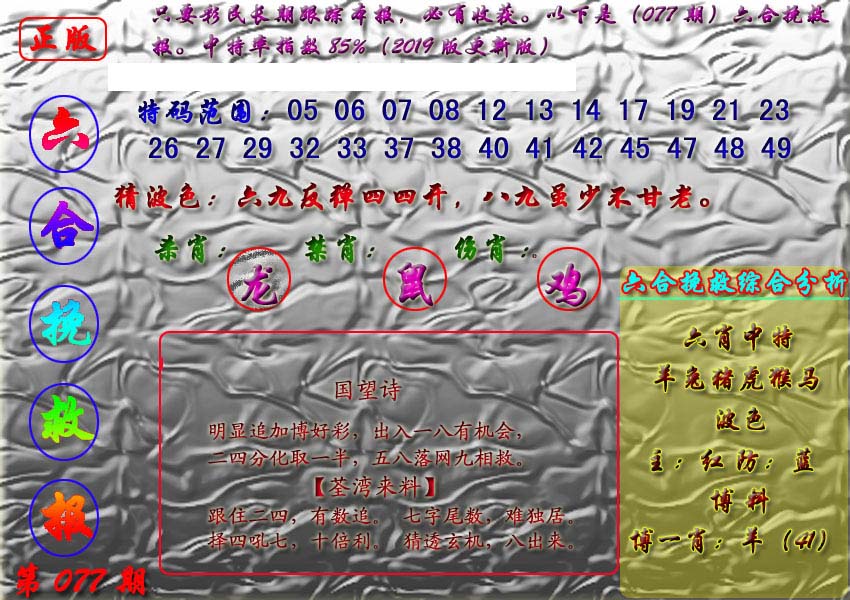 正版
只要彩民长期跟踪本报，必有收获。以下是（077期）六合挽救
报。中特率指数85%（2019版更新版）
六
合
挽
救
报
特码范围：05 06 07 08 12 13 14 17 19 21 23
26 27 29 32 33 37 38 40 41 42 45 47 48 49
猜波色：六九反弹四四开，八九虽少不甘老。
杀肖：龙 禁肖：鼠 伤肖：。鸡
国望诗
明显追加博好彩，出入一八有机会，
二四分化取一半，五八落网九相救。
【荃湾来料】
跟住二四，有数追。 七字尾数，难独居。
择四吼七，十倍利。 猜透玄机，八出来。
六合挽救综合分析
六肖中特
羊兔猪虎猴马
波色
主：红防：蓝
博料
博一肖：羊（41）
第077期